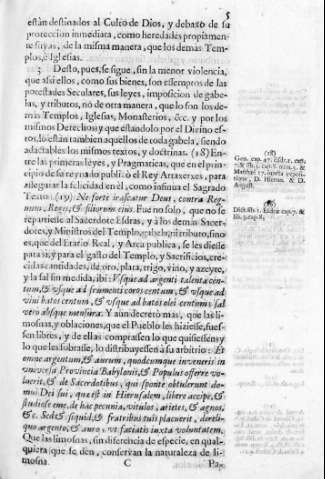 5
están destinados al Culto de Dios, y debaxo de su
proteccion inmediata, como heredades propiamen-
te suyas, de la misma manera, que los demas Tem-
plos, è Iglesias.
3 Desto, pues, se sigue, sin la menor violencia,
que assi ellos, como sus bienes, son essemptos de las
potestades Seculares, sus leyes, imposicion de gabe-
las, y tributos, nò de otra manera, que lo son los de-
mas Templos, Iglesias, Monasterios, &c. y por los
mismos Derechos y que estandolo por el Divino es-
tos, lo estàn tambien aquellos de toda gabela, siendo
adaptables los mismos textos, y doctrinas. (18) En-
tre las primeras leyes, y Pragmaticas, que en el prin-
cipio de su reynado publicò el Rey Artaxerxes, para
assegurar la felicidad en èl, como insinua el Sagrado
Texto: (19) Ne forte irascatur Deus, contra Reg-
num, Regis, & filiorum eius. Fue no solo, que no se
repartiesse al Sacerdote Esdras, y à los demàs Sacer-
dotes, y Ministros del Templo, gabela, ni tributo, sino
es, que del Erario Real, y Arca publica, se les diesse
para si, y para el gasto del Templo, y Sacrificios, cre-
cidas cantidades, de oro, plata, trigo, vino, y azeyte,
y la sal sin medida, ibi: Vsque ad argenti talenta cen-
tum, & vsque ad frumenti coros centum, & vsque ad
vini batos centum, & vsque ad batos olei centum: sal
vero absque mensura. Y aun decretò mas, que las li-
mosnas, y oblaciones, que el Pueblo les hiziesse, fues-
sen libres, y de ellas comprassen lo que quisiessen, y
lo que les sobrasse, lo distribuyessen à su arbitrio: Et
omne argentum, & aurum, quodcumque inveneris in
vniversa Provincia Babylonis, & Populus offerre vo-
luerit, & de Sacerdotibus, qui sponte obtulerint do-
mui Dei sui, que est in Hierusalem, libere accipe, &
studiose eme, de hac pecunia, vitulos, arietes, & agnos,
&c. Sed & siquid, & fratribus tuis placuerit, de reli-
quo argento, & auro, vt faciatis iuxta voluntatem.
Que las limosnas, sin diferencia de especie, en qual-
quiera que se den, conservan la naturaleza de li-
mosna.
C Pa-
(18)
Gen. cap. 47.
D. Hieron. & D.
August.